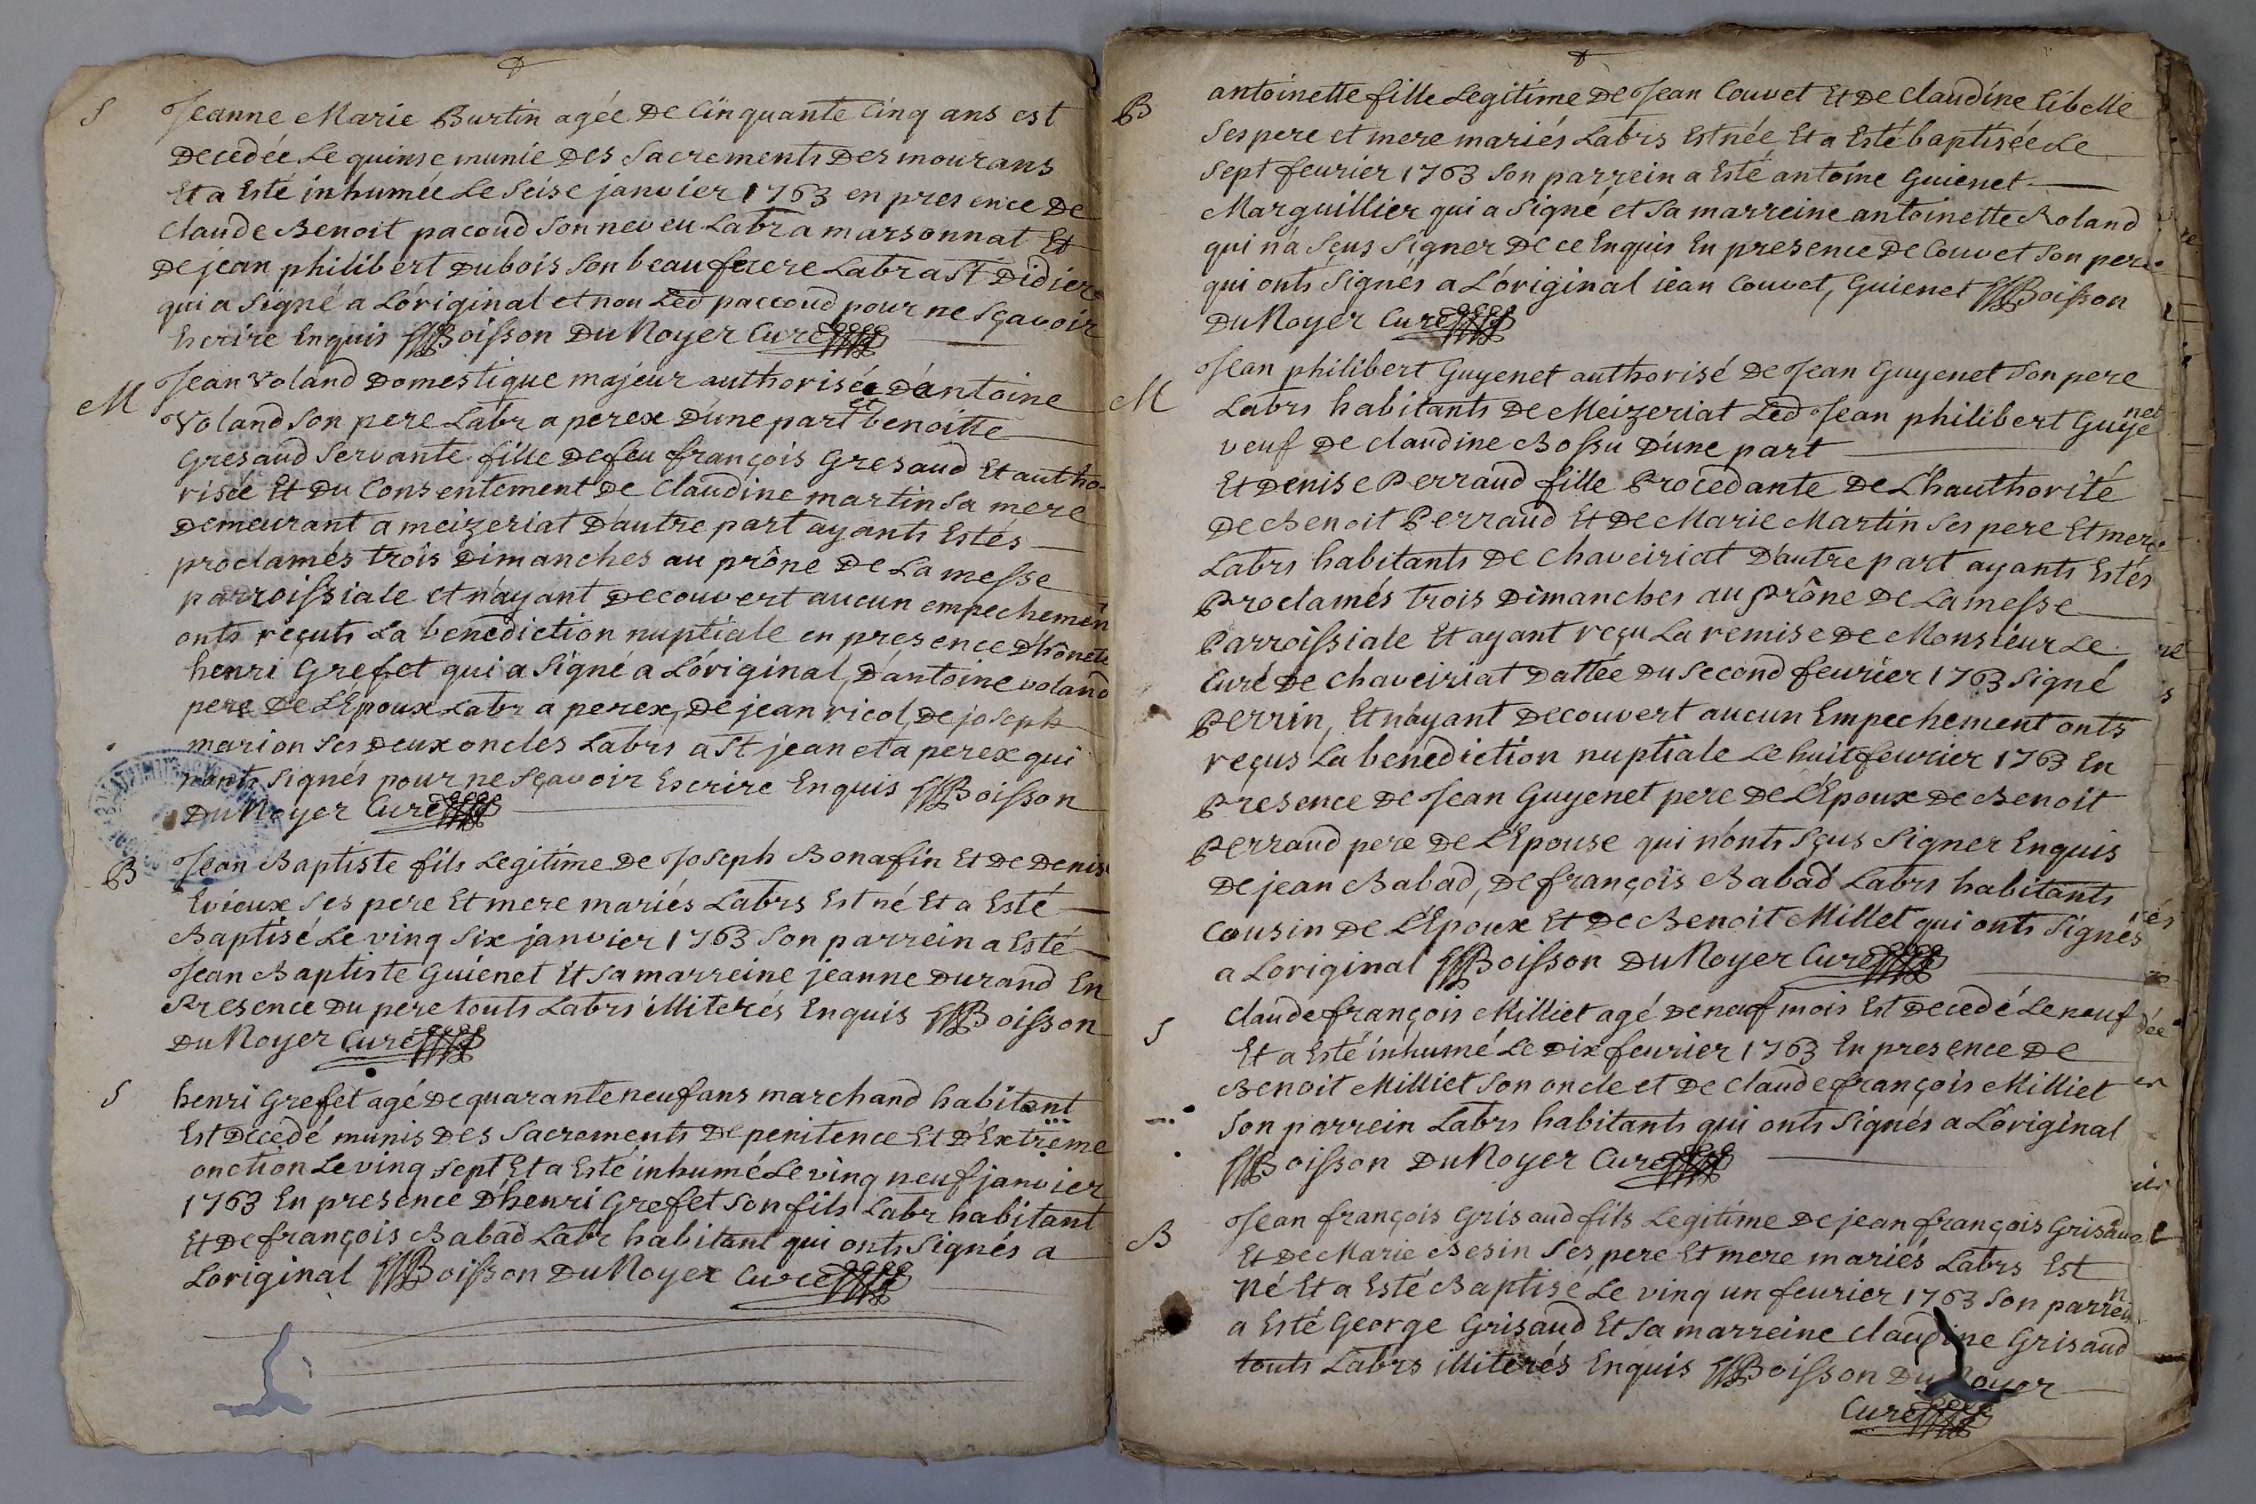 S Jeanne Marie Burtin agée De Cinquante Cinq ans est
Decedée Le quinse munie Des Sacrements Des mourans
Et a Esté inhumée Le Seise janvier 1763 en presence De
Claude Benoit pacoud Son neveu Labr a marsonnat Et
De jean philibert Dubois Son beau frere Labr a St Didier
qui a Signé a L'original et non Led paccoud pour ne Sçavoir
Escrire Enquis Boisson Du Noyer Curé
M Jean Voland Domestique majeur authorisée D'antoine
Voland Son pere Labr a perex D'une part et benoitte
Gresaud Servante fille De feu françois Gresaud Et autho-
risée Et Du Consentement De Claudine martin Sa mere
Demeurant a meizeriat D'autre part ayants Estés
proclamés trois Dimanches au prône De La messe
parroissiale et n'ayant Decouvert aucun empechemen
onts reçuts La benediction nuptiale en presence D'hônete
henri Grefet qui a Signé a L'original, D'antoine voland
pere De L'Epoux Labr a perex, De jean ricol, De joseph
marion Ses Deux oncles Labrs a St jean et a perex qui
n'onts Signés pour ne Sçavoir Escrire Enquis Boisson
Du Noyer Curé
B Jean Baptiste fils Legitime De Joseph Bonafin Et De Denis
Evieux Ses pere Et mere mariés Labrs Est né Et a Esté
Baptisé Le ving Six janvier 1763 Son parrein a Esté
Jean Baptiste Guienet Et Sa marreine jeanne Durand En
Presence Du pere touts Labrs illiterés Enquis Boisson
Du Noyer Curé
S henri Grefet agé De quarante neuf ans marchand habitant
Est Decedé munis Des Sacrements De penitence Et D'Extrême
onction Le ving Sept Et a Esté inhumé Le ving neuf janvier
1763 En presence D'henri Grefet Son fils Labr habitant
Et De françois Babad Labr habitant qui onts Signés a
L'original Boisson Du Noyer Curé
B antoinette fille Legitime De Jean Couvet Et De Claudine Libelle
Ses pere et mere mariés Labrs Est née Et a Esté baptisée Le
Sept fevrier 1763 Son parrein a Esté antoine Guienet
Marguillier qui a Signé et Sa marreine antoinette Roland
qui n'a Sçus Signer De ce Enquis En presence De Couvet Son pere
qui onts Signés a L'original jean Couvet, Guienet Boisson
Du Noyer Curé
M Jean philibert Guyenet authorisé De Jean Guyenet Son pere
Labrs habitants De Meizeriat Led Jean philibert Guyenet
veuf De Claudine Bossu D'une part
Et Denise Perraud fille Procedante De L'hauthorité
De Benoit Perraud Et De Marie Martin Ses pere Et mere
Labrs habitants De Chaveiriat D'autre part ayants Estés
Proclamés trois Dimanches au Prône De La messe
Parroissiale Et ayant reçu La remise De Monsieur Le
Curé De Chaveiriat Dattée Du Second fevrier 1763 Signé
Perrin, Et n'ayant Decouvert aucun Empechement onts
reçus La benediction nuptiale Le huit fevrier 1763 En
Presence De Jean Guyenet pere De L'Epoux De Benoit
Perraud pere De L'Epouse qui n'onts Sçus Signer Enquis
De jean Babad, De françois Babad Labrs habitants
Cousin De L'Epoux Et De Benoit Millet qui onts Signés
a Loriginal Boisson Du Noyer Curé
S Claude françois Milliet agé De neuf mois Est Decedé Le neuf
Et a Esté inhumé Le Dix fevrier 1763 En presence De
Benoit Milliet Son oncle et De Claude françois Milliet
Son parrein Labrs habitants qui onts Signés a L'original
Boisson Du Noyer Curé
B Jean françois Grisaud fils Legitime De jean françois Grisaud
Et De Marie Besin Ses pere Et mere mariés Labrs Est
Né Et a Esté Baptisé Le ving un fevrier 1763 Son parrein
a Esté George Grisaud Et Sa marreine Claudine Grisaud
touts Labrs illiterés Enquis Boisson Du Noyer
Curé